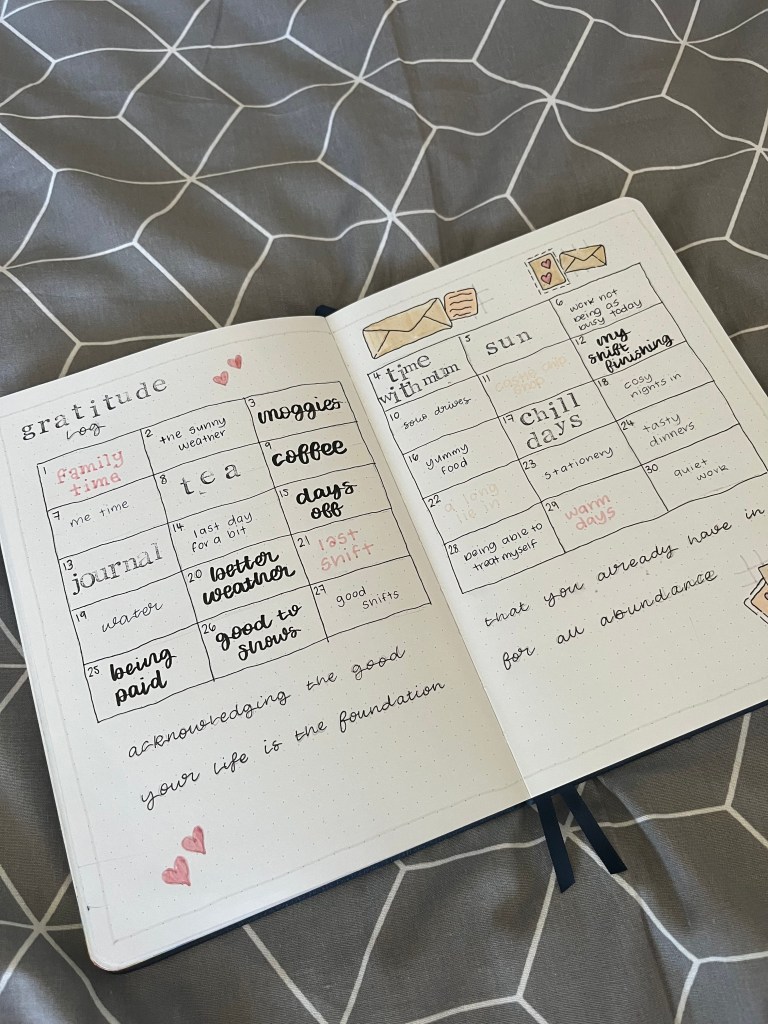 gratitude
log
1 family
time
2 the sunny
weather
3 moggies
7 me time
8 tea
9 coffee
13 journal
14 last day
for a bit
15 days
off
19 water
20 better
weather
21 last
shift
25 being
paid
26 good tv
shows
27 good
shifts
acknowledging the good
your life is the foundation
4 time
with mum
5 sun
6 work not
being as
busy today
10 solo drives
11 chip
shop
12 my
shift
finishing
16 yummy
food
17 chill
days
18 cosy
nights in
22 a long
lie in
23 stationery
24 tasty
dinners
28 being able to
treat myself
29 warm
days
30 quiet
work
that you already have in
for all abundance